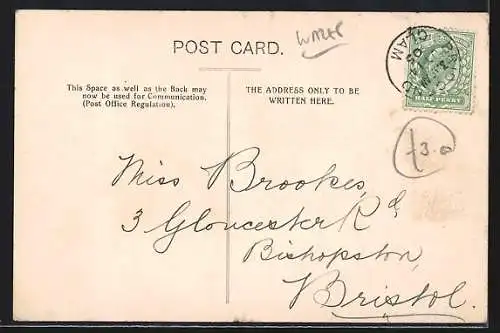 POST CARD.
This Space as well as the Back may
now be used for Communication.
(Post Office Regulation).
THE ADDRESS ONLY TO BE
WRITTEN HERE.
HALF PENNY
£3.0
Miss Brookes,
3 Gloucester Rd,
Bishopston,
Bristol.